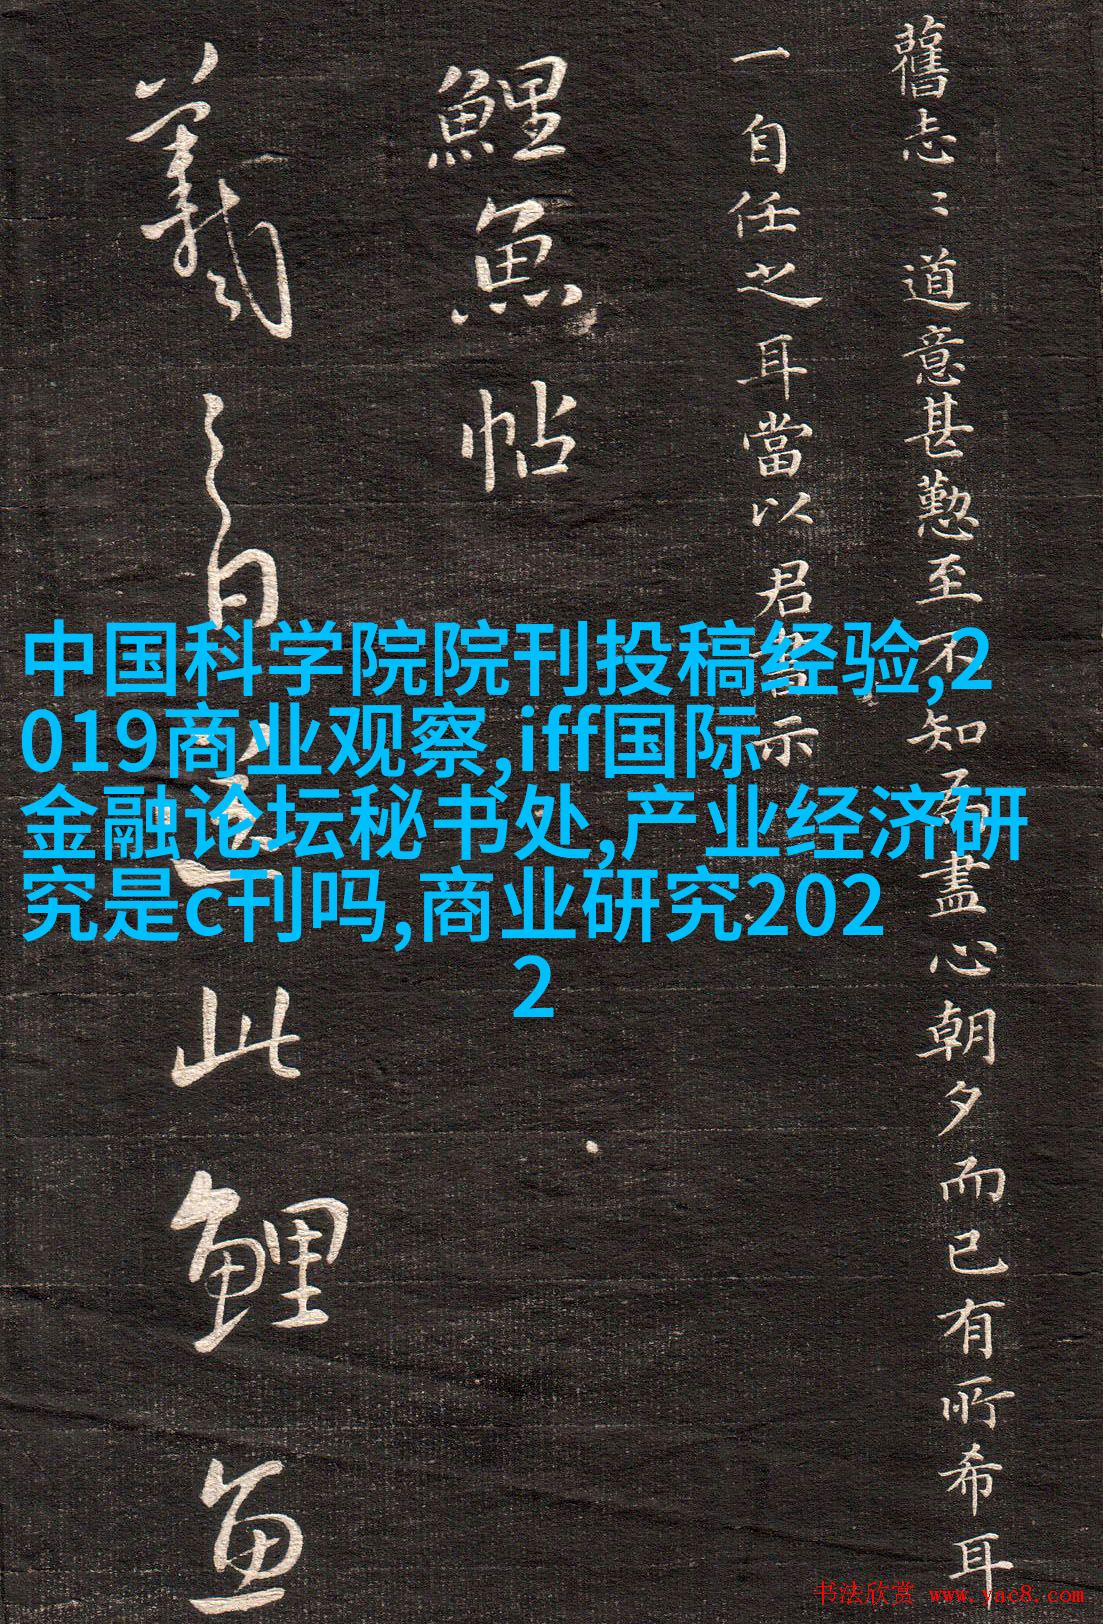 舊志〻道意甚懃至不知為盡心朝夕而已有所希耳
一自任之耳當以君書示
鯉魚帖
羲之白送此鯉魚
中国科学院院刊投稿经验,2
019商业观察,iff国际
金融论坛秘书处,产业经济研
究是c刊吗,商业研究202
2
书法欣赏 www.yac8.com